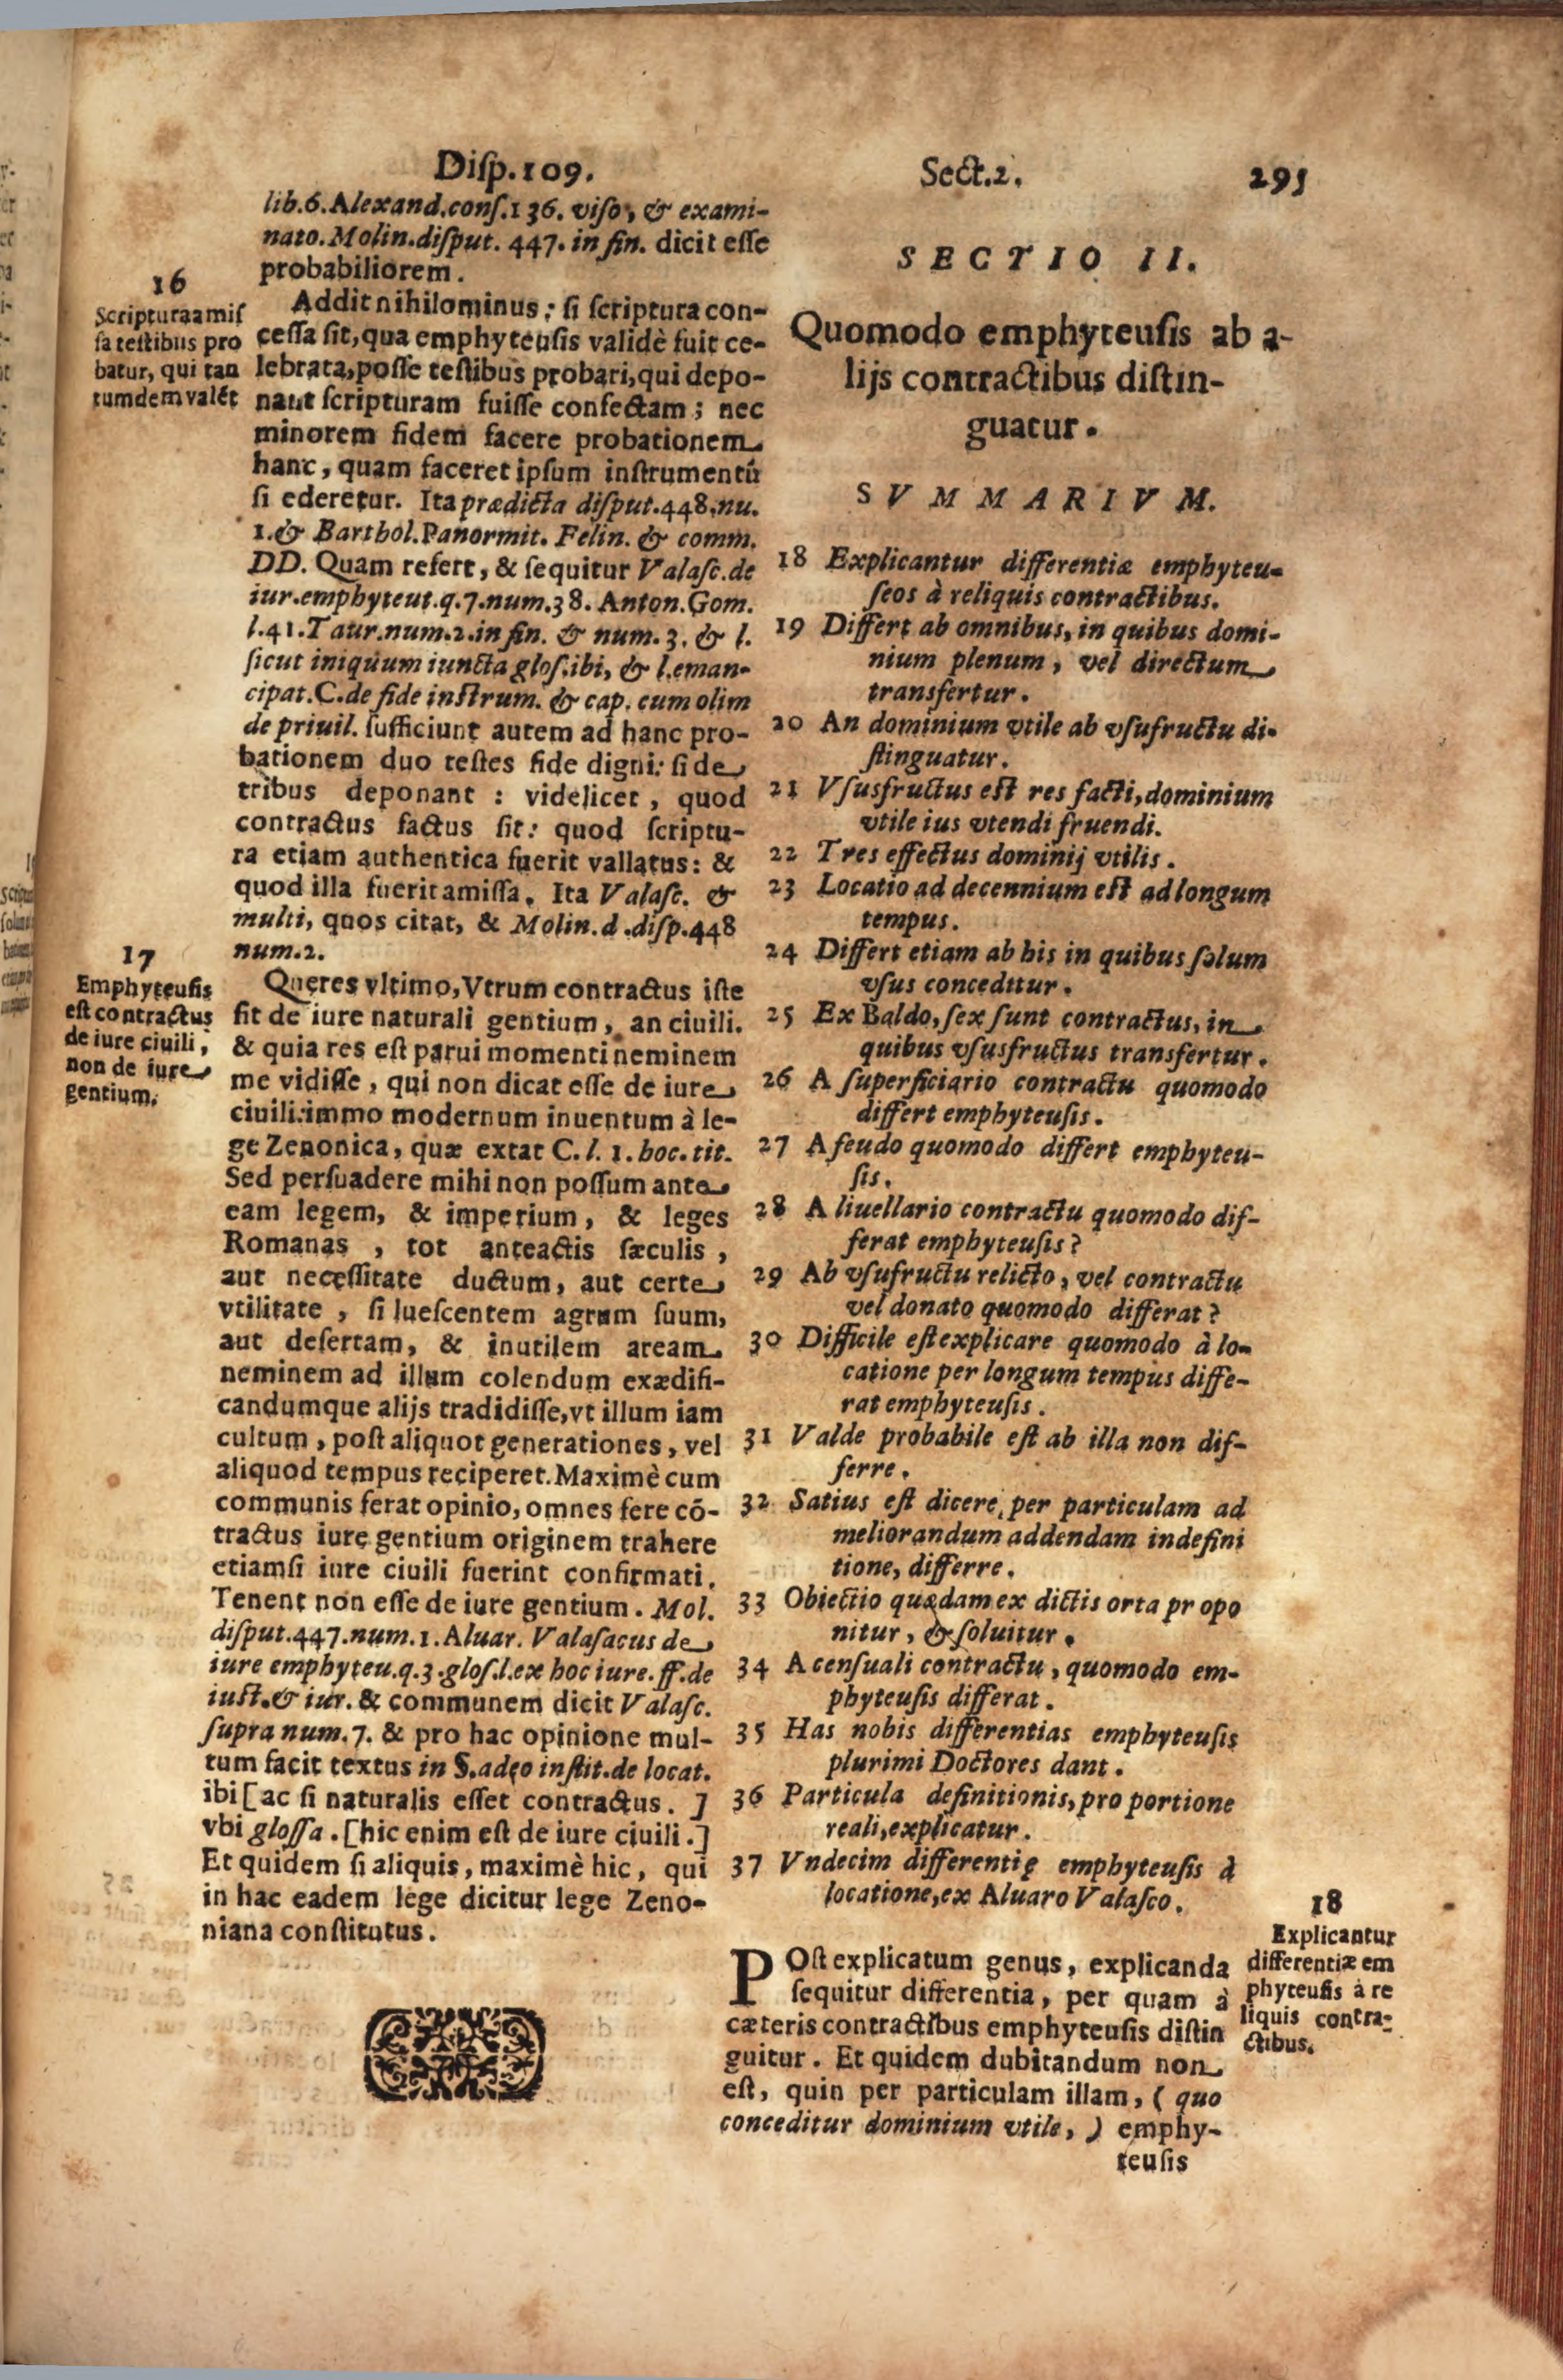 Disp.109.
Sect.2.
295
lib.6.Alexand.cons.136. viso, & exami-
nato.Molin.disput. 447. in fin. dicit esse
probabiliorem.
16
Scripturaamis
sa testibus pro
batur, qui tan
tumdem valét
Addit nihilominus; si scriptura con-
cessa sit, qua emphyteusis validè fuit ce-
lebrata, posse testibus probari, qui depo-
nant scripturam fuisse confectam; nec
minorem fidem facere probationem
hanc, quam faceret ipsum instrumentû
si ederetur. Ita prædicta disput.448.nu.
1.& Barthol.Panormit. Felin. & comm.
DD. Quam refert, & sequitur Valasc.de
iur.emphyteut.q.7.num.38. Anton.Gom.
l.41.Taur.num.2.in fin. & num.3. & l.
sicut iniquum iuncta glos.ibi, & l.eman-
cipat.C.de fide instrum. & cap. cum olim
de priuil. sufficiunt autem ad hanc pro-
bationem duo testes fide digni: si de
tribus deponant : videlicet, quod
contractus factus sit: quod scriptu-
ra etiam authentica fuerit vallatus: &
quod illa fuerit amissa. Ita Valasc. &
multi, quos citat, & Molin.d.disp.448
num.2.
17
Emphyteusis
est contractus
de iure ciuili,
non de iure
gentium.
Queres vltimo, Vtrum contractus iste
sit de iure naturali gentium, an ciuili.
& quia res est parui momenti neminem
me vidisse, qui non dicat esse de iure
ciuili:immo modernum inuentum à le-
ge Zenonica, quæ extat C. l. 1. hoc. tit.
Sed persuadere mihi non possum ante
eam legem, & imperium, & leges
Romanas , tot anteactis sæculis ,
aut necessitate ductum, aut certe
vtilitate , si luescentem agrum suum,
aut desertam, & inutilem aream
neminem ad illum colendum exædifi-
candumque alijs tradidisse, vt illum iam
cultum, post aliquot generationes, vel
aliquod tempus reciperet. Maximè cum
communis ferat opinio, omnes fere cō-
tractus iure gentium originem trahere
etiamsi iure ciuili fuerint confirmati.
Tenent non esse de iure gentium. Mol.
disput.447.num.1.Aluar. Valasacus de
iure emphyteu.q.3.glos.l.ex hoc iure.ff.de
iust.& iur. & communem dicit Valasc.
supra num.7. & pro hac opinione mul-
tum facit textus in §.adeo instit.de locat.
ibi [ac si naturalis esset contractus. ]
vbi glossa . [hic enim est de iure ciuili.]
Et quidem si aliquis, maximè hic, qui
in hac eadem lege dicitur lege Zeno-
niana constitutus.
SECTIO II.
Quomodo emphyteusis ab a-
lijs contractibus distin-
guatur.
SVMMARIVM.
18 Explicantur differentiæ emphyteu-
seos à reliquis contractibus.
19 Differt ab omnibus, in quibus domi-
nium plenum, vel directum
transfertur.
20 An dominium vtile ab vsufructu di-
stinguatur.
21 Vsusfructus est res facti, dominium
vtile ius vtendi fruendi.
22 Tres effectus dominij vtilis.
23 Locatio ad decennium est ad longum
tempus.
24 Differt etiam ab his in quibus solum
vsus conceditur.
25 Ex Baldo, sex sunt contractus, in
quibus vsusfructus transfertur.
26 A superficiario contractu quomodo
differt emphyteusis.
27 A feudo quomodo differt emphyteu-
sis.
28 A liuellario contractu quomodo dif-
ferat emphyteusis?
29 Ab vsufructu relicto, vel contractu
vel donato quomodo differat?
30 Difficile est explicare quomodo à lo-
catione per longum tempus diffe-
rat emphyteusis.
31 Valde probabile est ab illa non dif-
ferre.
32 Satius est dicere, per particulam ad
meliorandum addendam indefini
tione, differre.
33 Obiectio quædam ex dictis orta propo
nitur, & soluitur.
34 A censuali contractu, quomodo em-
phyteusis differat.
35 Has nobis differentias emphyteusis
plurimi Doctores dant.
36 Particula definitionis, pro portione
reali, explicatur.
37 Vndecim differentię emphyteusis à
locatione, ex Aluaro Valasco.
18
Explicantur
differentiæ em
phyteusis à re
liquis contra-
ctibus.
POst explicatum genus, explicanda
sequitur differentia, per quam à
cæteris contractibus emphyteusis distin
guitur. Et quidem dubitandum non
est, quin per particulam illam, ( quo
conceditur dominium vtile, ) emphy-
teusis